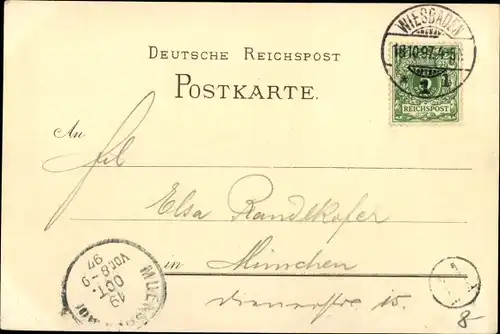 WIESBADEN
18.10.97. 4-5N.
* 1
REICHSPOST
DEUTSCHE REICHSPOST
POSTKARTE.
An
Frl.
Elsa Randlkofer
in München
15.
19
OCT.
VOR. 8-9
97
8-